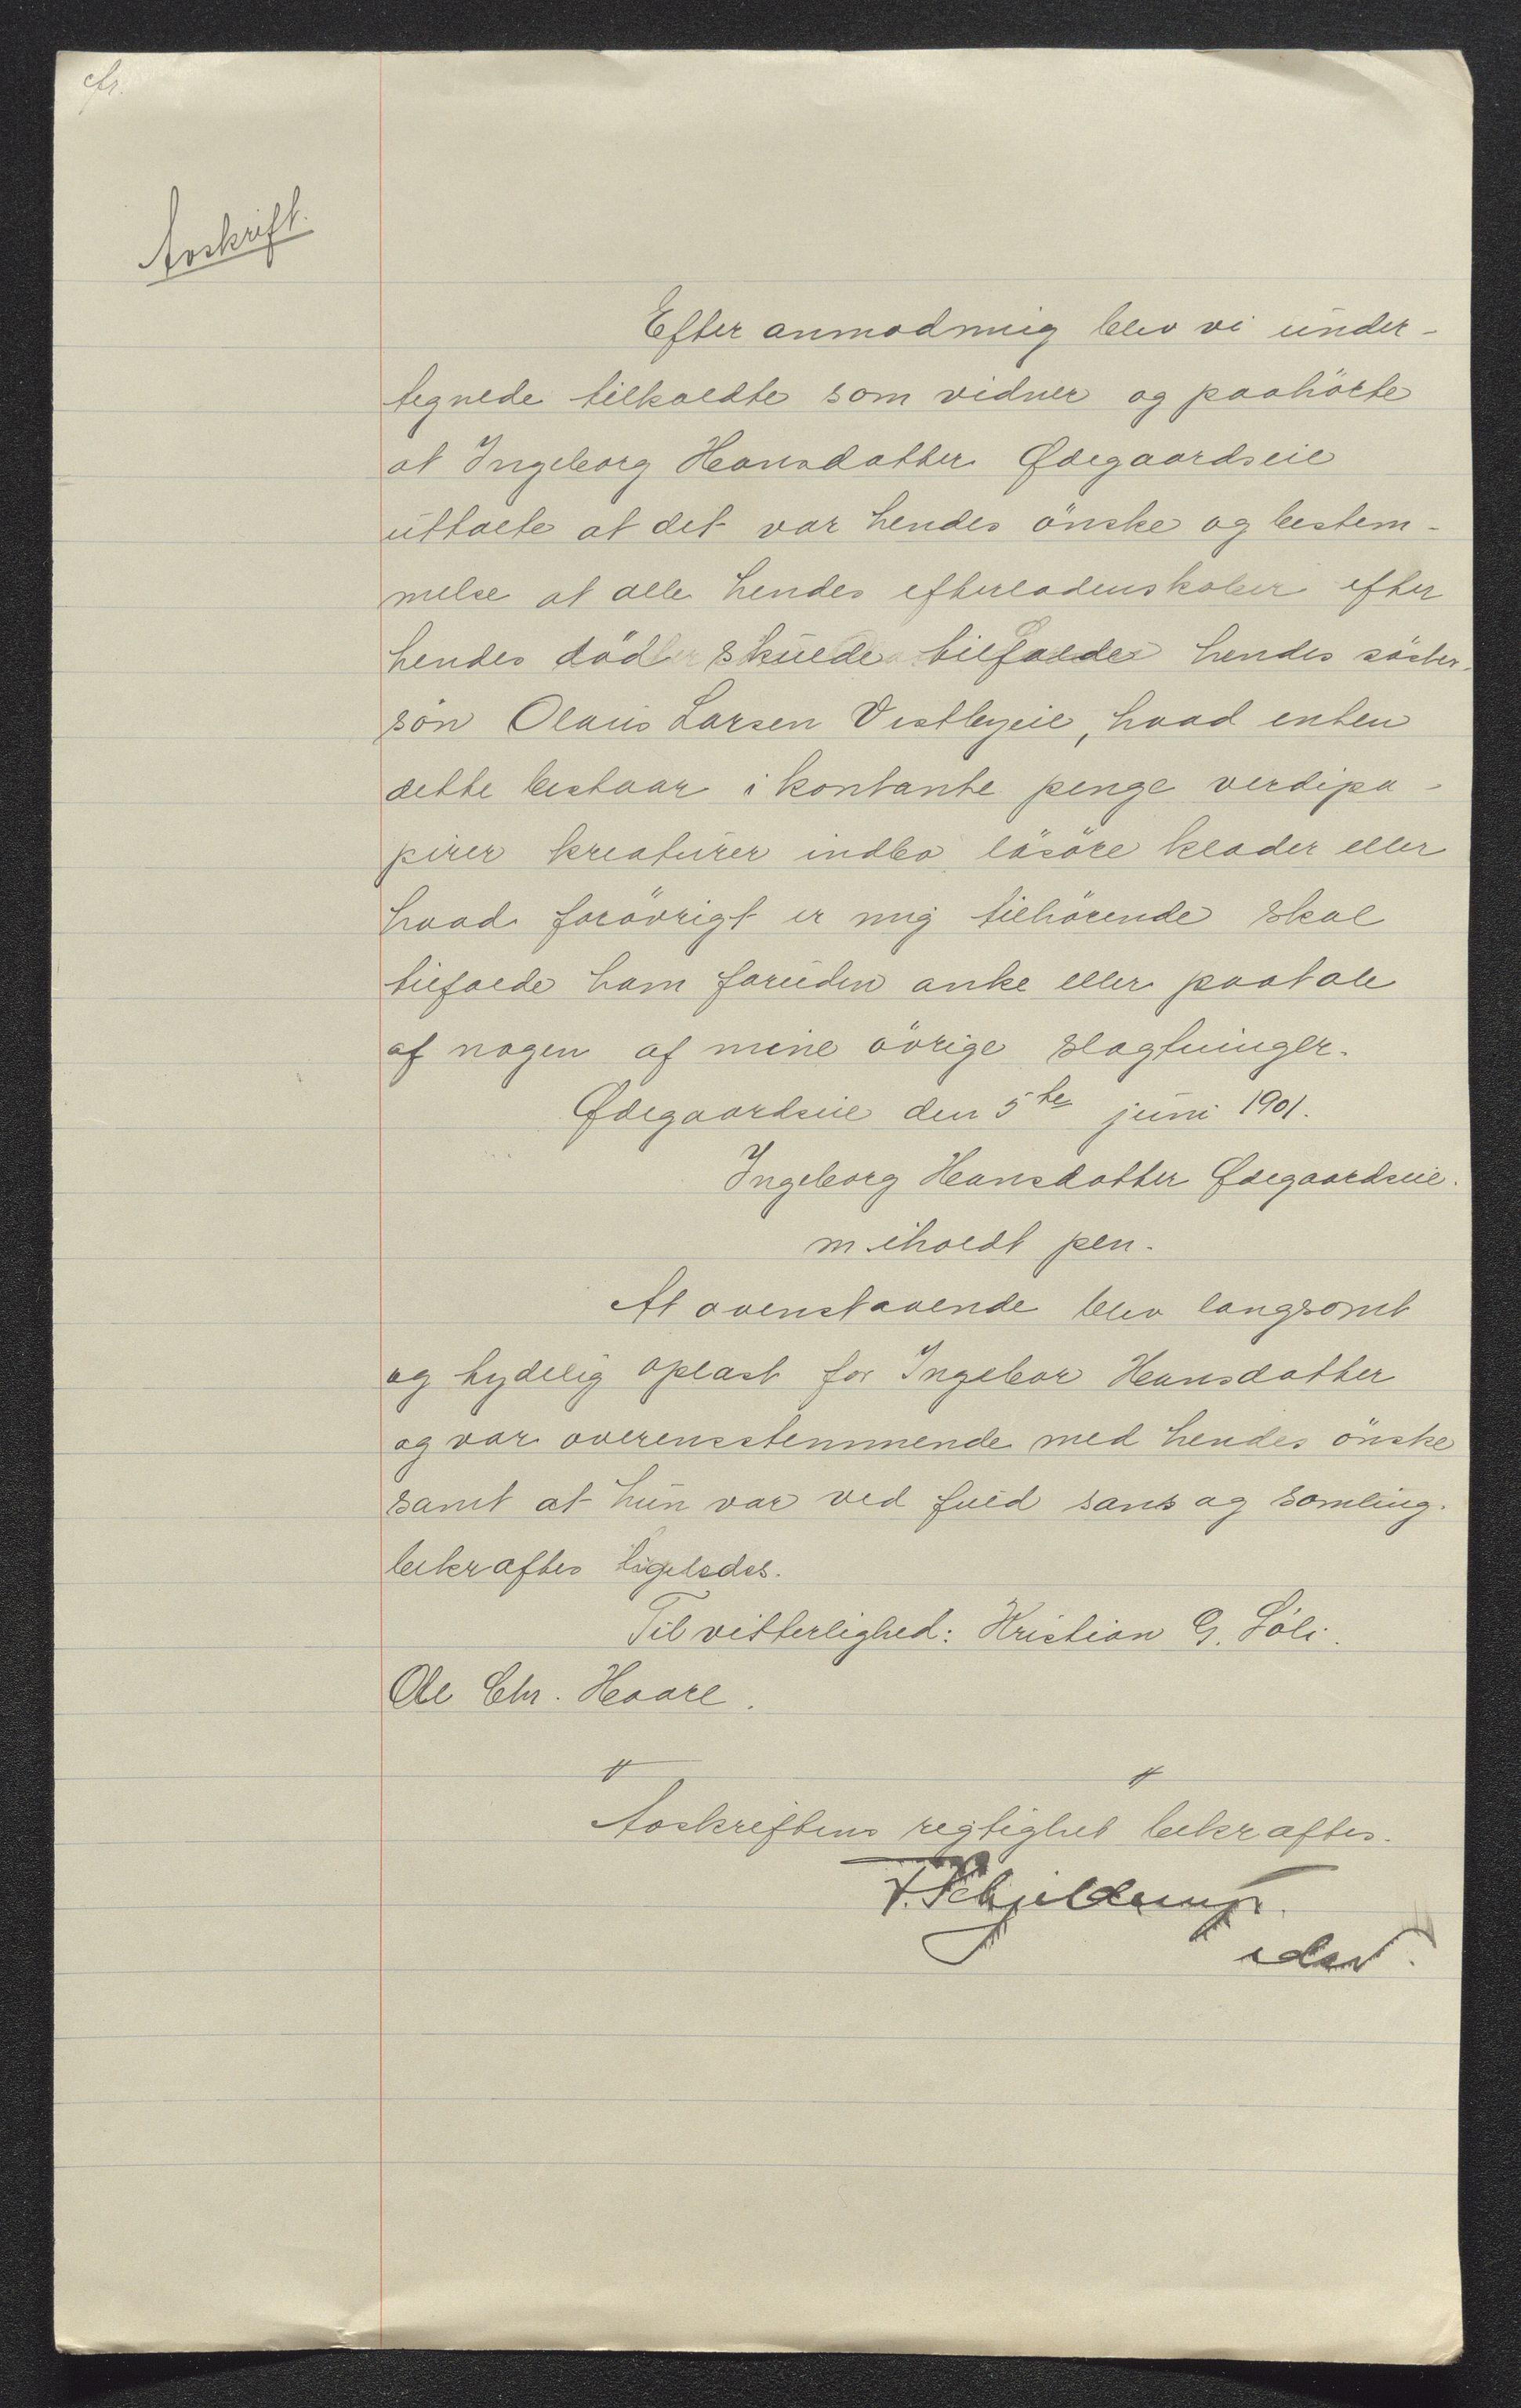 cfr.
Avskrift.
Efter anmodning blev vi under-
tegnede tilkaldte som vidner og paahörte
at Ingeborg Hansdatter Ødegaardseie
uttalte at det var hendes önske og bestem-
melse at alle hendes efterladenskaber efter
hendes död skulde tilfalde hendes söster-
sön Olaus Larsen Vestbyeie, hvad enten
dette bestaar i kontante penge verdipa-
pirer kreaturer indbo lösöre klæder eller
hvad forövrigt er mig tilhörende skal
tilfalde ham foruden anke eller paatale
af nogen af mine övrige slagtninger.
Ødegaardseie den 5te juni 1901.
Ingeborg Hansdatter Ødegaardseie.
m iholdt pen.
At ovenstaaende blev langsomt
og tydelig oplæst for Ingebor Hansdatter
og var overensstemmende med hendes önske
samt at hun var ved fuld sans og samling.
bekræftes ligeledes.
Til vitterlighed: Kristian G. Löli.
Ole Chr. Haare.
Avskriftens regtighet bekræftes.